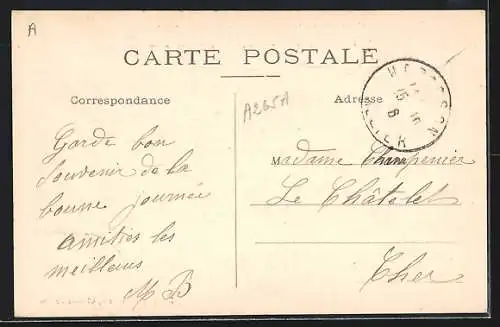 A
CARTE POSTALE
Correspondance
A265A
Adresse
Garde bon
souvenir de la
bonne journée
amitiés les
meilleurs
MB
Madame Champenier
Le Châtelet
Cher